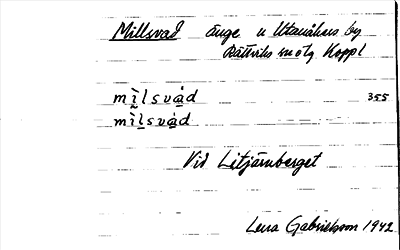 Millsvad änge u Utanåkers by
Rättviks sn otg Koppl
mìlsvåd 355
mìlsvåd
Vid Litjärnberget
Lena Gabrielsson 1942